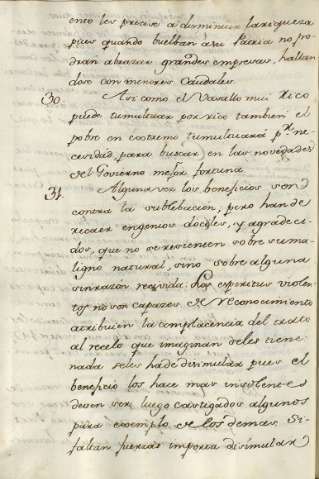 ento les precise a disminuir la riqueza
pues quando buelban à su Patria no po-
dran abrazar grandes empresas, hallan
dose con menores Caudales.
30. Asi como el Vasallo mui Rico
puede tumultuar por rico tambien el
pobre en extremo tumultuará pr. ne-
cesidad, para buscar en las novedades
del Govierno mejor fortuna.
31. Alguna vez los beneficios son
contra la sublebacion, pero han de
recaer engenios dociles, y agradeci-
dos, que no se resienten sobre su ma-
ligno natural, sino sobre alguna
sinrazon recivida. Los espiritus violen-
tos no son capazes de Reconocimiento
atribuien la complacencia del
al recelo que imaginan de les tiene
nada se les ha de disimular pues el
beneficio los hace mas insolentes
deven ser luego castigados algunos
para exemplo de los demas. Si
faltan fuerzas importa disimular